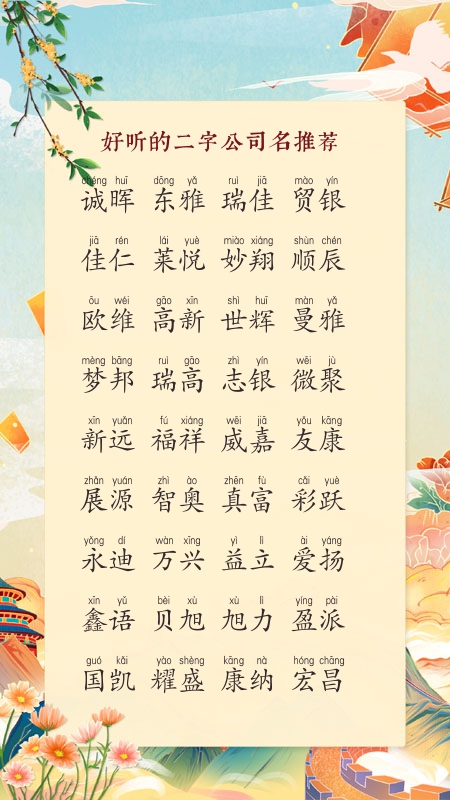 好听的二字公司名推荐
chéng huī dōng yǎ ruì jiā mào yín
诚晖 东雅 瑞佳 贸银
jiā rén lái yuè miào xiáng shùn chén
佳仁 莱悦 妙翔 顺辰
ōu wéi gāo xīn shì huī màn yǎ
欧维 高新 世辉 曼雅
mèng bāng ruì gāo zhì yín wēi jù
梦邦 瑞高 志银 微聚
xīn yuǎn fú xiáng wēi jiā yǒu kāng
新远 福祥 威嘉 友康
zhǎn yuán zhì ào zhēn fù cǎi yuè
展源 智奥 真富 彩跃
yǒng dí wàn xīng yì lì ài yáng
永迪 万兴 益立 爱扬
xīn yǔ bèi xù xù lì yíng pài
鑫语 贝旭 旭力 盈派
guó kǎi yào shèng kāng nà hóng chāng
国凯 耀盛 康纳 宏昌